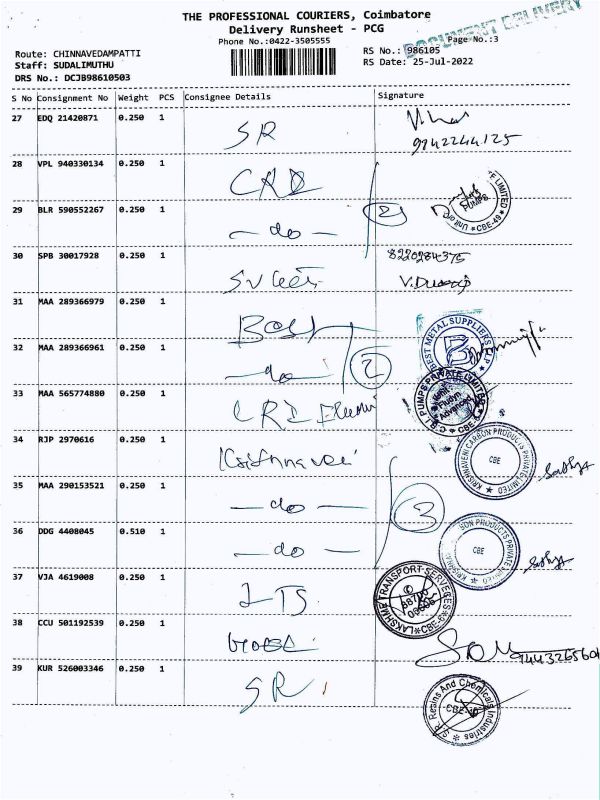 THE PROFESSIONAL COURIERS, Coimbatore
Delivery Runsheet - PCG
DOCUMENT DELIVERY
Phone No.:0422-3505555
Page No.:3
Route: CHINNAVEDAMPATTI
RS No.: 986105
Staff: SUDALIMUTHU
RS Date: 25-Jul-2022
DRS No.: DCJB98610503
S No Consignment No Weight PCS Consignee Details Signature
27 EDQ 21420871 0.250 1
SR
9142244125
28 VPL 940330134 0.250 1
29 BLR 590552267 0.250 1
- do -
2
30 SPB 30017928 0.250 1
8220284375
31 MAA 289366979 0.250 1
32 MAA 289366961 0.250 1
- do -
2
BEST METAL SUPPLIERS
33 MAA 565774880 0.250 1
CRI Fludyn
PUMPS PRIVATE LIMITED
Unit: Fludyn Advanced
34 RJP 2970616 0.250 1
KRISHNAVENI CARBON PRODUCTS PRIVATE LIMITED
CBE
Sathya
35 MAA 290153521 0.250 1
- do -
3
36 DDG 4408045 0.510 1
- do -
CBE
Sathya
37 VJA 4619008 0.250 1
LTS
LAKSHME TRANSPORT SERVICES
38 CCU 501192539 0.250 1
9443265604
39 KUR 526003346 0.250 1
SR
S.R. Resins And Chemicals Industries